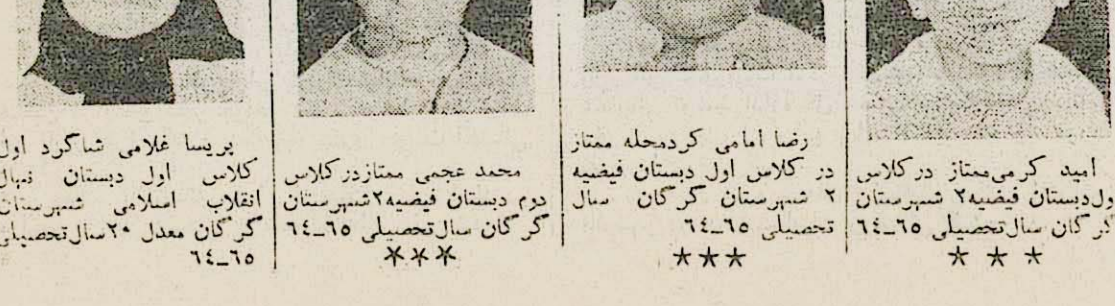 امید کرمی ممتاز در کلاس
اول دبستان فیضیه ۲ شهرستان
گرگان سال تحصیلی ۶۵ـ۶۴
* * *
رضا امامی کردمحله ممتاز
در کلاس اول دبستان فیضیه
۲ شهرستان گرگان سال
تحصیلی ۶۵ـ۶۴
***
محمد عجمی ممتاز در کلاس
دوم دبستان فیضیه ۲ شهرستان
گرگان سال تحصیلی ۶۵ـ۶۴
***
پریسا غلامی شاگرد اول
کلاس اول دبستان نهال
انقلاب اسلامی شهرستان
گرگان معدل ۲۰ سال تحصیلی
۶۵ـ۶۴